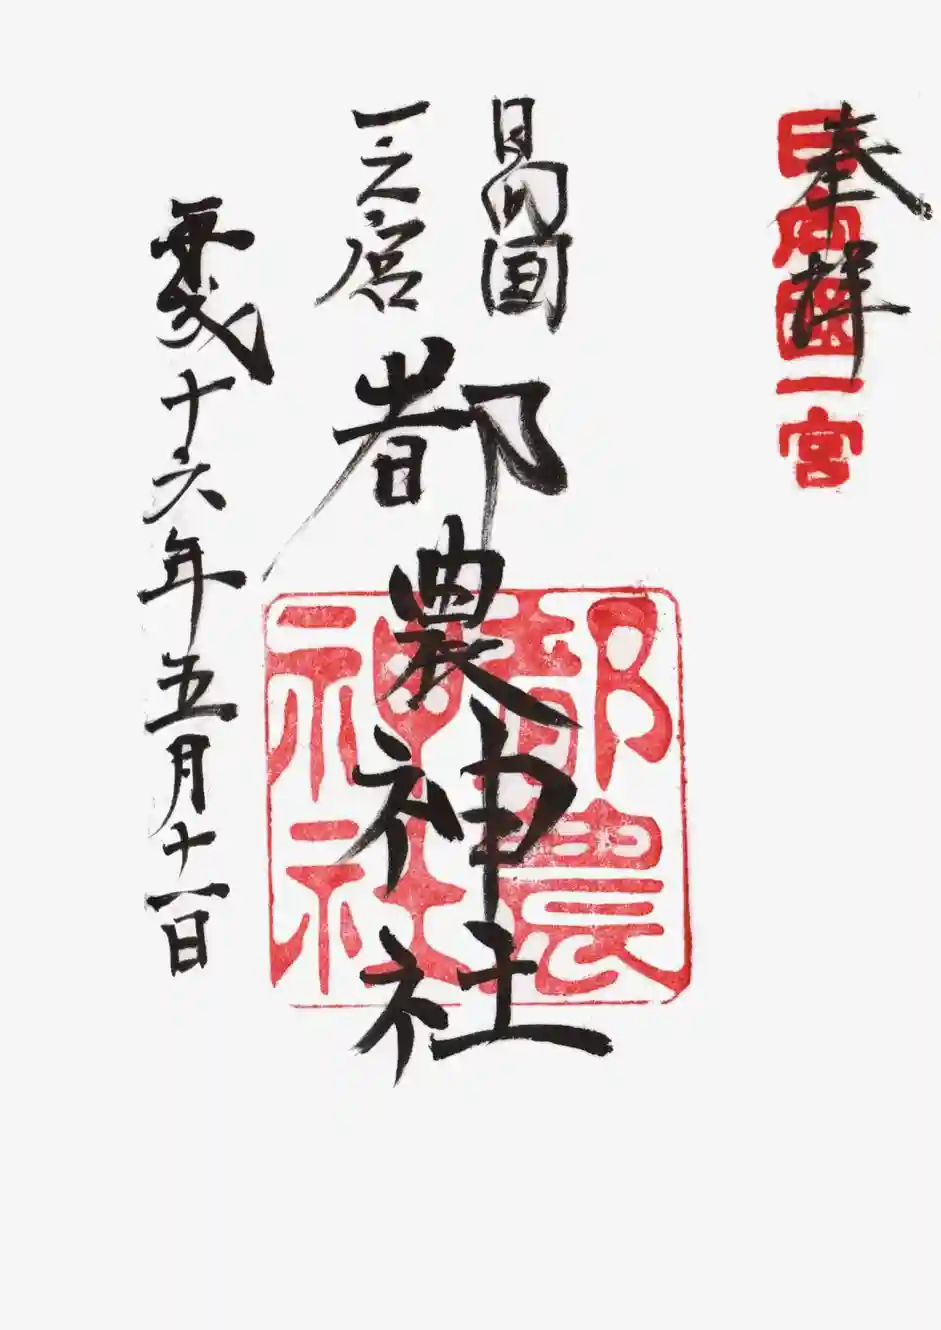 奉拝
日向國一宮
日向国
一之宮
都農神社
都農神社
平成十六年五月十一日